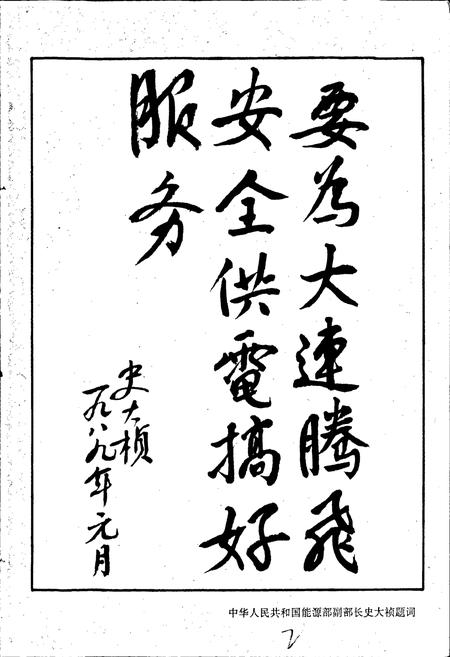 要為大連腾飛
安全供電搞好
服务
史大桢
一九八九年元月
中华人民共和国能源部副部长史大祯题词
2